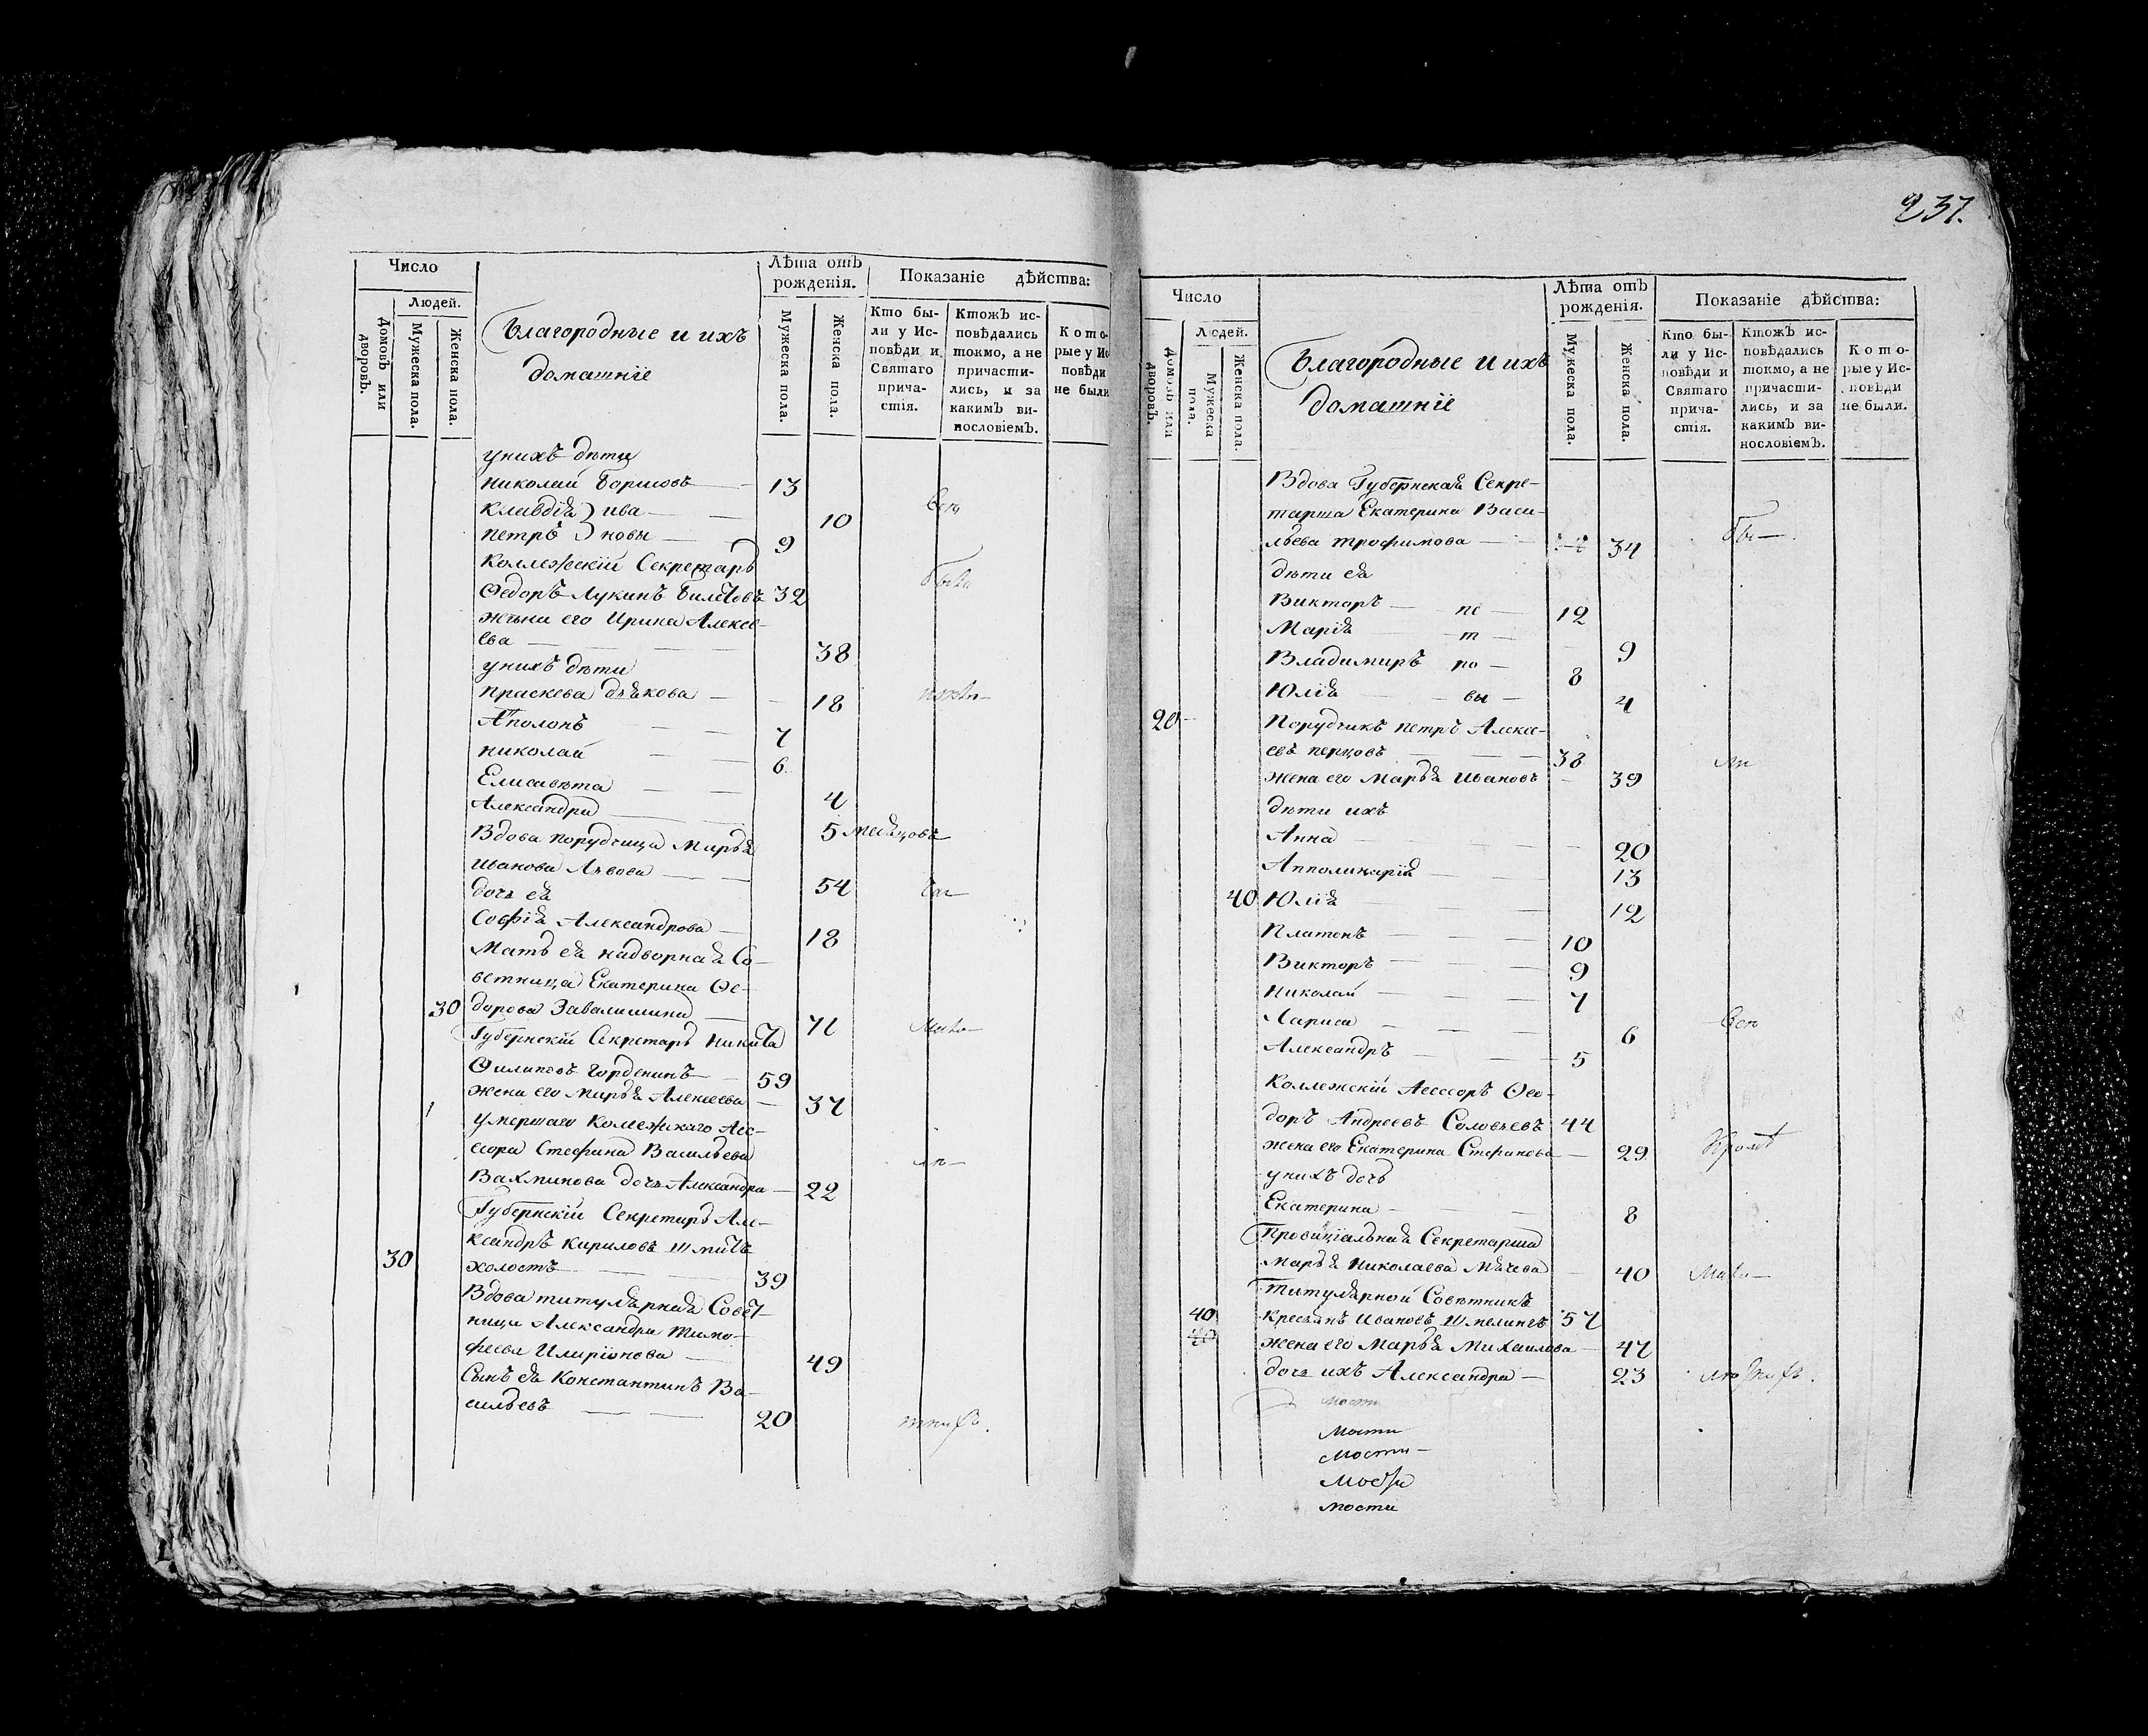 Число
Людей.
Домовъ или дворовъ.
Мужеска пола.
Женска пола.
Благородные и ихъ
домашнiе
Лѣта отъ
рожденiя.
Мужеска пола.
Женска пола.
Показанiе дѣйства:
Кто бы-
ли у Ис-
повѣди и
Святаго
прича-
стiя.
Ктожъ ис-
повѣдались
токмо, а не
причасти-
лись, и за
какимъ ви-
нословiемъ.
Кото-
рые у Ис
повѣди
не были
унихъ дѣти
Николай Борисовъ 13
Клавдiя } ива 10
Петръ } новы 9
Коллежскiй Секретарь
Ѳедоръ Лукинъ 32
жена его Ирина Алексе-
ева 38
унихъ дѣти
Праскева Дьякова 18
Аполонъ 7
Николай 6
Елисавѣта 4
Александра 5 месяцовъ
Вдова порутчица Марья
Иванова Львова 54
дочь ея
Софiя Александрова 18
Мать ея надворная Со-
ветница Екатерина Ѳе-
30 дорова Завалишина 71
Губернскiй Секретарь Никита
Филиповъ Горденинъ 59
жена его Марья Алексеева 37
умершаго Колежскаго Асе-
сора Стефана Васильева
Вахмикова дочь Александра 22
Губернскiй Секретарь Але-
ксандръ Кириловъ Шмитъ
30 холостъ 39
Вдова титулярная Совет-
ница Александра Тимо-
феева Иларiонова 49
Сынъ ея Константинъ Ва-
сильевъ 20
237.
Число
Людей.
Домовъ или дворовъ.
Мужеска пола.
Женска пола.
Благородные и ихъ
домашнiе
Лѣта отъ
рожденiя.
Мужеска пола.
Женска пола.
Показанiе дѣйства:
Кто бы-
ли у Ис-
повѣди и
Святаго
прича-
стiя.
Ктожъ ис-
повѣдались
токмо, а не
причасти-
лись, и за
какимъ ви-
нословiемъ.
Кото-
рые у Ис-
повѣди
не были.
Вдова Губернская Секре-
тарша Екатерина Васи-
льева Трофимова 34
дѣти ея
Викторъ пе 12
Марiя т 9
Владимиръ ро 8
Юлiя вы 4
20 Порутчикъ Петръ Алексе-
евъ Перцовъ 38
жена его Марья Иванов 39
дѣти ихъ
Анна 20
Апполинарiя 13
40 Юлiя 12
Платонъ 10
Викторъ 9
Николай 7
Лариса 6
Александръ 5
Коллежскiй Асессоръ Ѳео-
доръ Андреевъ Соловьевъ 44
жена его Екатерина Стефанова 29
унихъ дочь
Екатерина 8
Провинцiальная Секретарша
Марья Николаева Мячева 40
Титулярной Советникъ
40 Крестьянъ Ивановъ Шмелингъ 57
жена его Марья Михайлова 47
дочь ихъ Александра 23
мости
мости
мости
мости
мости